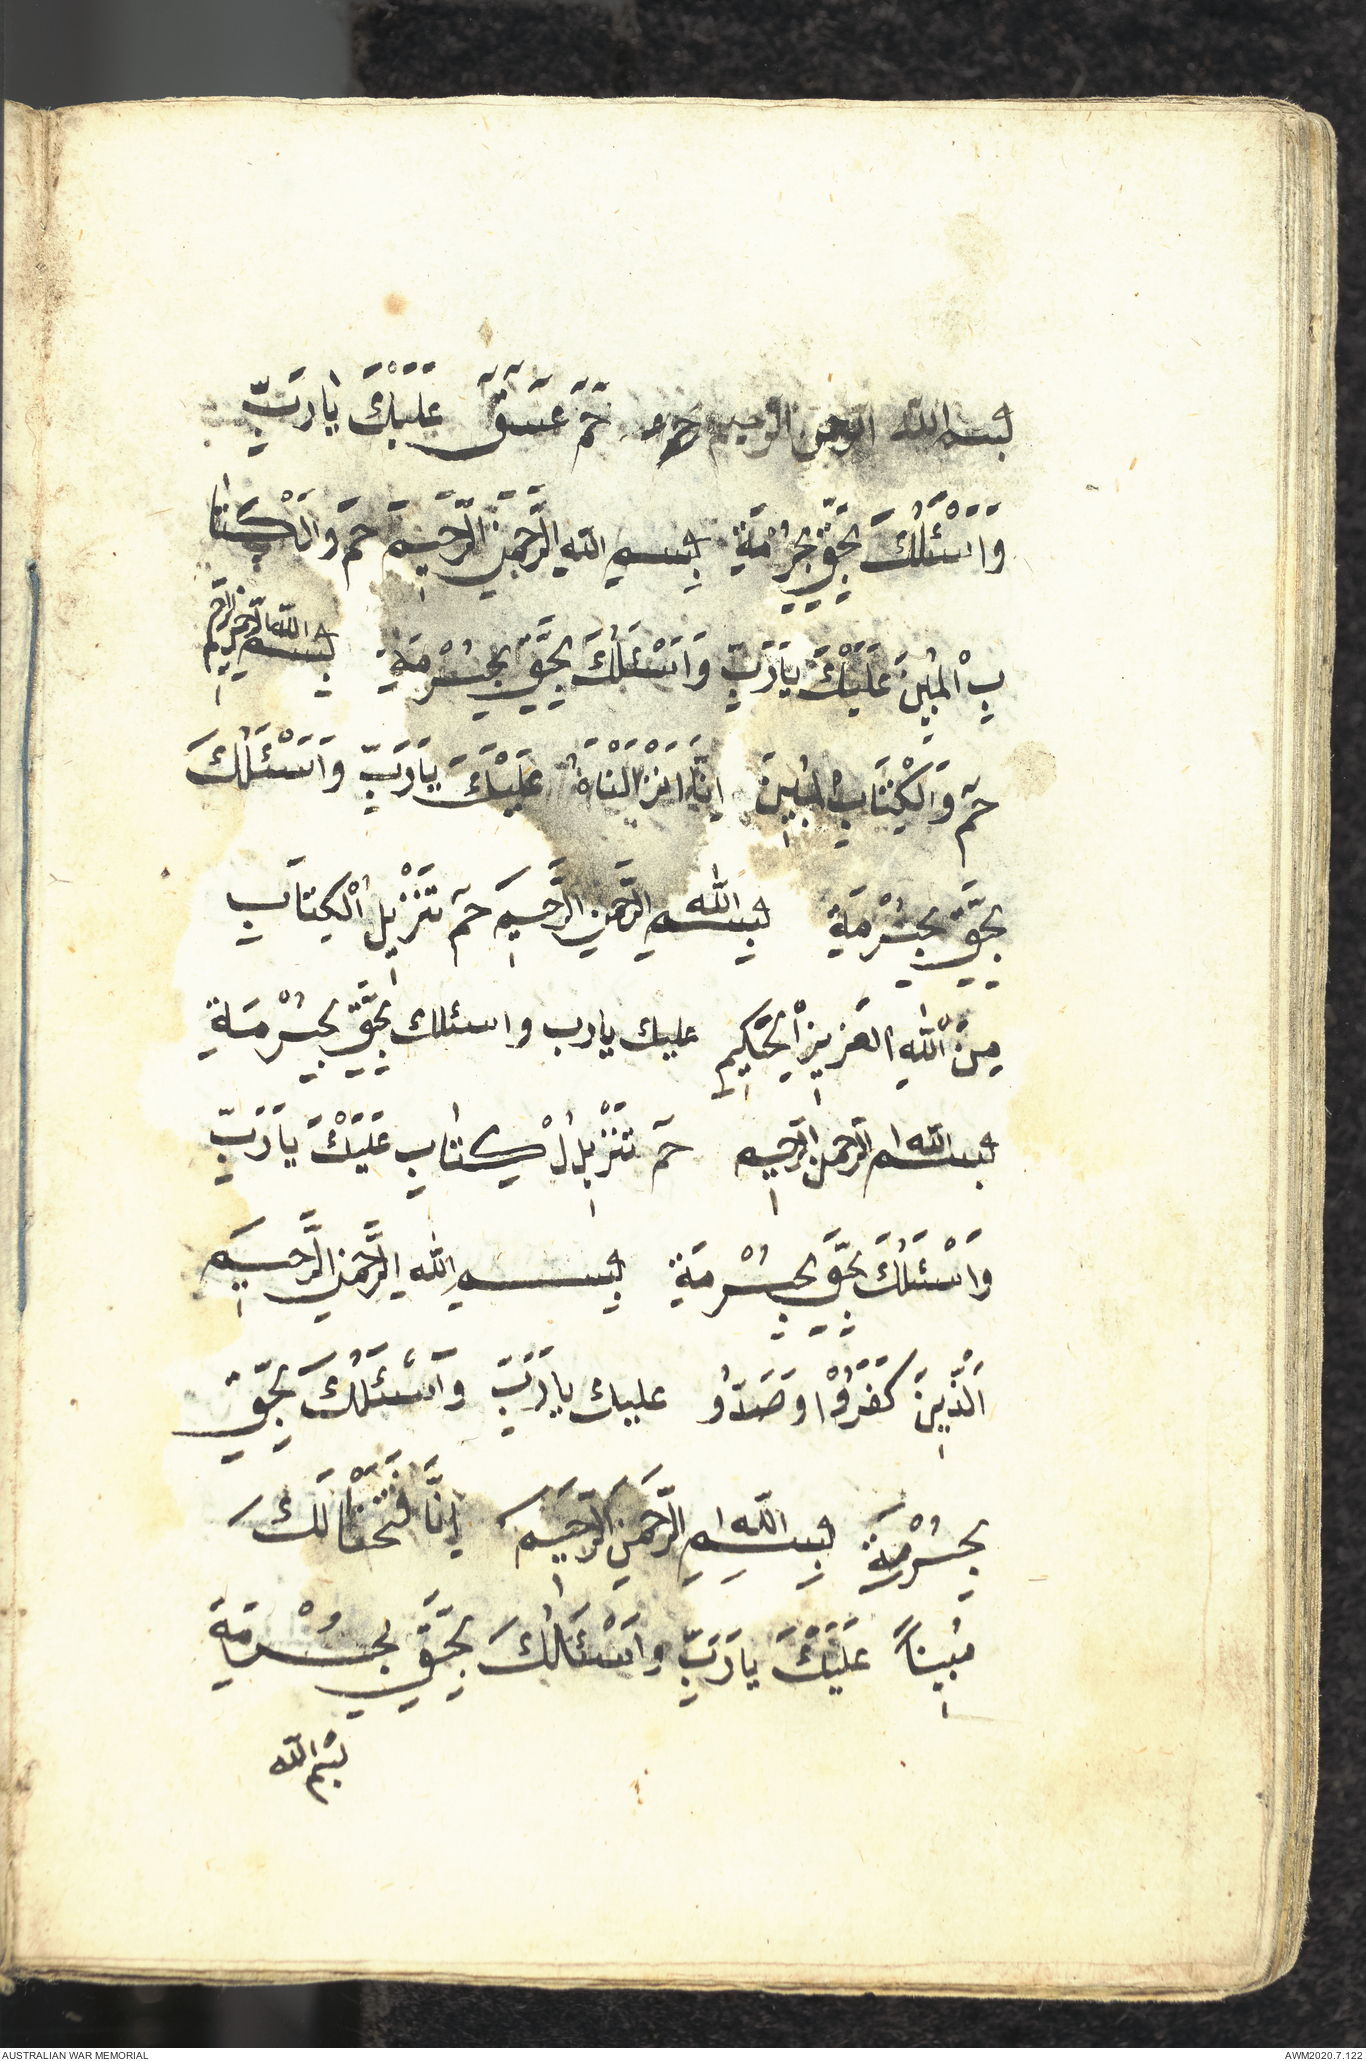 بسم الله الرحمن الرحيم حم حٓمٓ عٓسٓقٓ عَلَيْكَ يٰارَبِّ
وَاَسْئَلُكَ بِحَقِّ بِحُرْمَةِ بِسمِ اللهِ الرَّحْمٰنِ الرَّحِيمِ حٓمٓ وَالْكِتَا
بِ الْمُبِينِ عَلَيْكَ يَارَبِّ وَاَسْئَلُكَ بِحَقِّ بِحُرْمَةِ بِسم الله الرحمن الرحيم
حٓمٓ وَالْكِتَابِ الْمُبِينِ اِنَّا اَنْزَلْنَاهُ عَلَيْكَ يَارَبِّ وَاَسْئَلُكَ
بِحَقِّ بِحُرْمَةِ بِسمِ اللهِ الرَّحْمٰنِ الرَّحِيمِ حٓمٓ تَنْزِيلُ الْكِتَابِ
مِنَ اللهِ الْعَزِيزِ الْحَكِيمِ عليك يارب واسئلك بِحَقِّ بِحُرْمَةِ
بسم الله الرحمن الرحيم حٓمٓ تَنْزِيلُ لْكِتٰابِ عَلَيْكَ يَارَبِّ
وَاَسْئَلُكَ بِحَقِّ بِحُرْمَةِ بِسمِ اللهِ الرَّحْمٰنِ الرَّحِيمِ
اَلَّذِينَ كَفَرُوْا وَصَدُّو عليك يارَبِّ وَاَسْئَلُكَ بِحَقِّ
بِحُرْمَةِ بِسمِ اللهِ الرَّحْمٰنِ الرَّحِيمِ اِنَّا فَتَحْنَا لَكَ
مُبِيناً عَلَيْكَ يَارَبِّ وَاَسْئَلُكَ بِحَقِّ بِحُرْمَةِ
بسم الله
AUSTRALIAN WAR MEMORIAL AWM2020.7.122